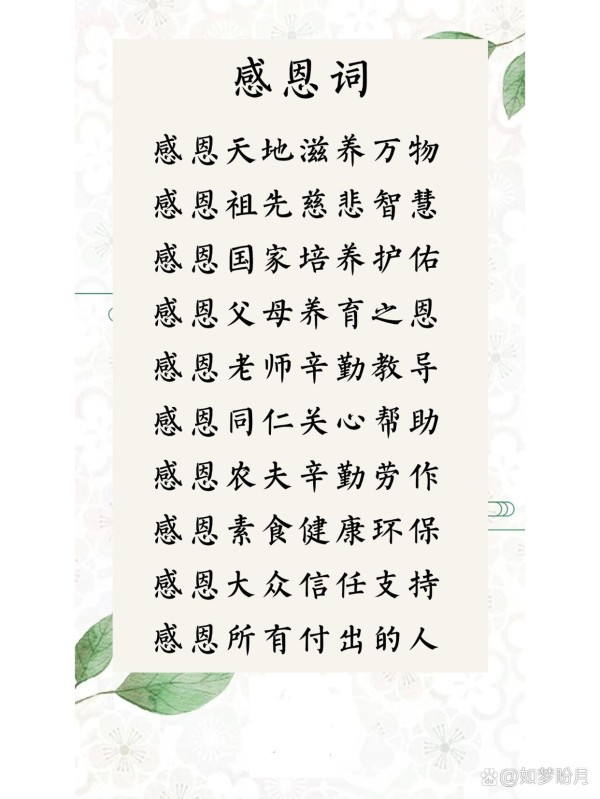 感恩词
感恩天地滋养万物
感恩祖先慈悲智慧
感恩国家培养护佑
感恩父母养育之恩
感恩老师辛勤教导
感恩同仁关心帮助
感恩农夫辛勤劳作
感恩素食健康环保
感恩大众信任支持
感恩所有付出的人
@如梦盼月